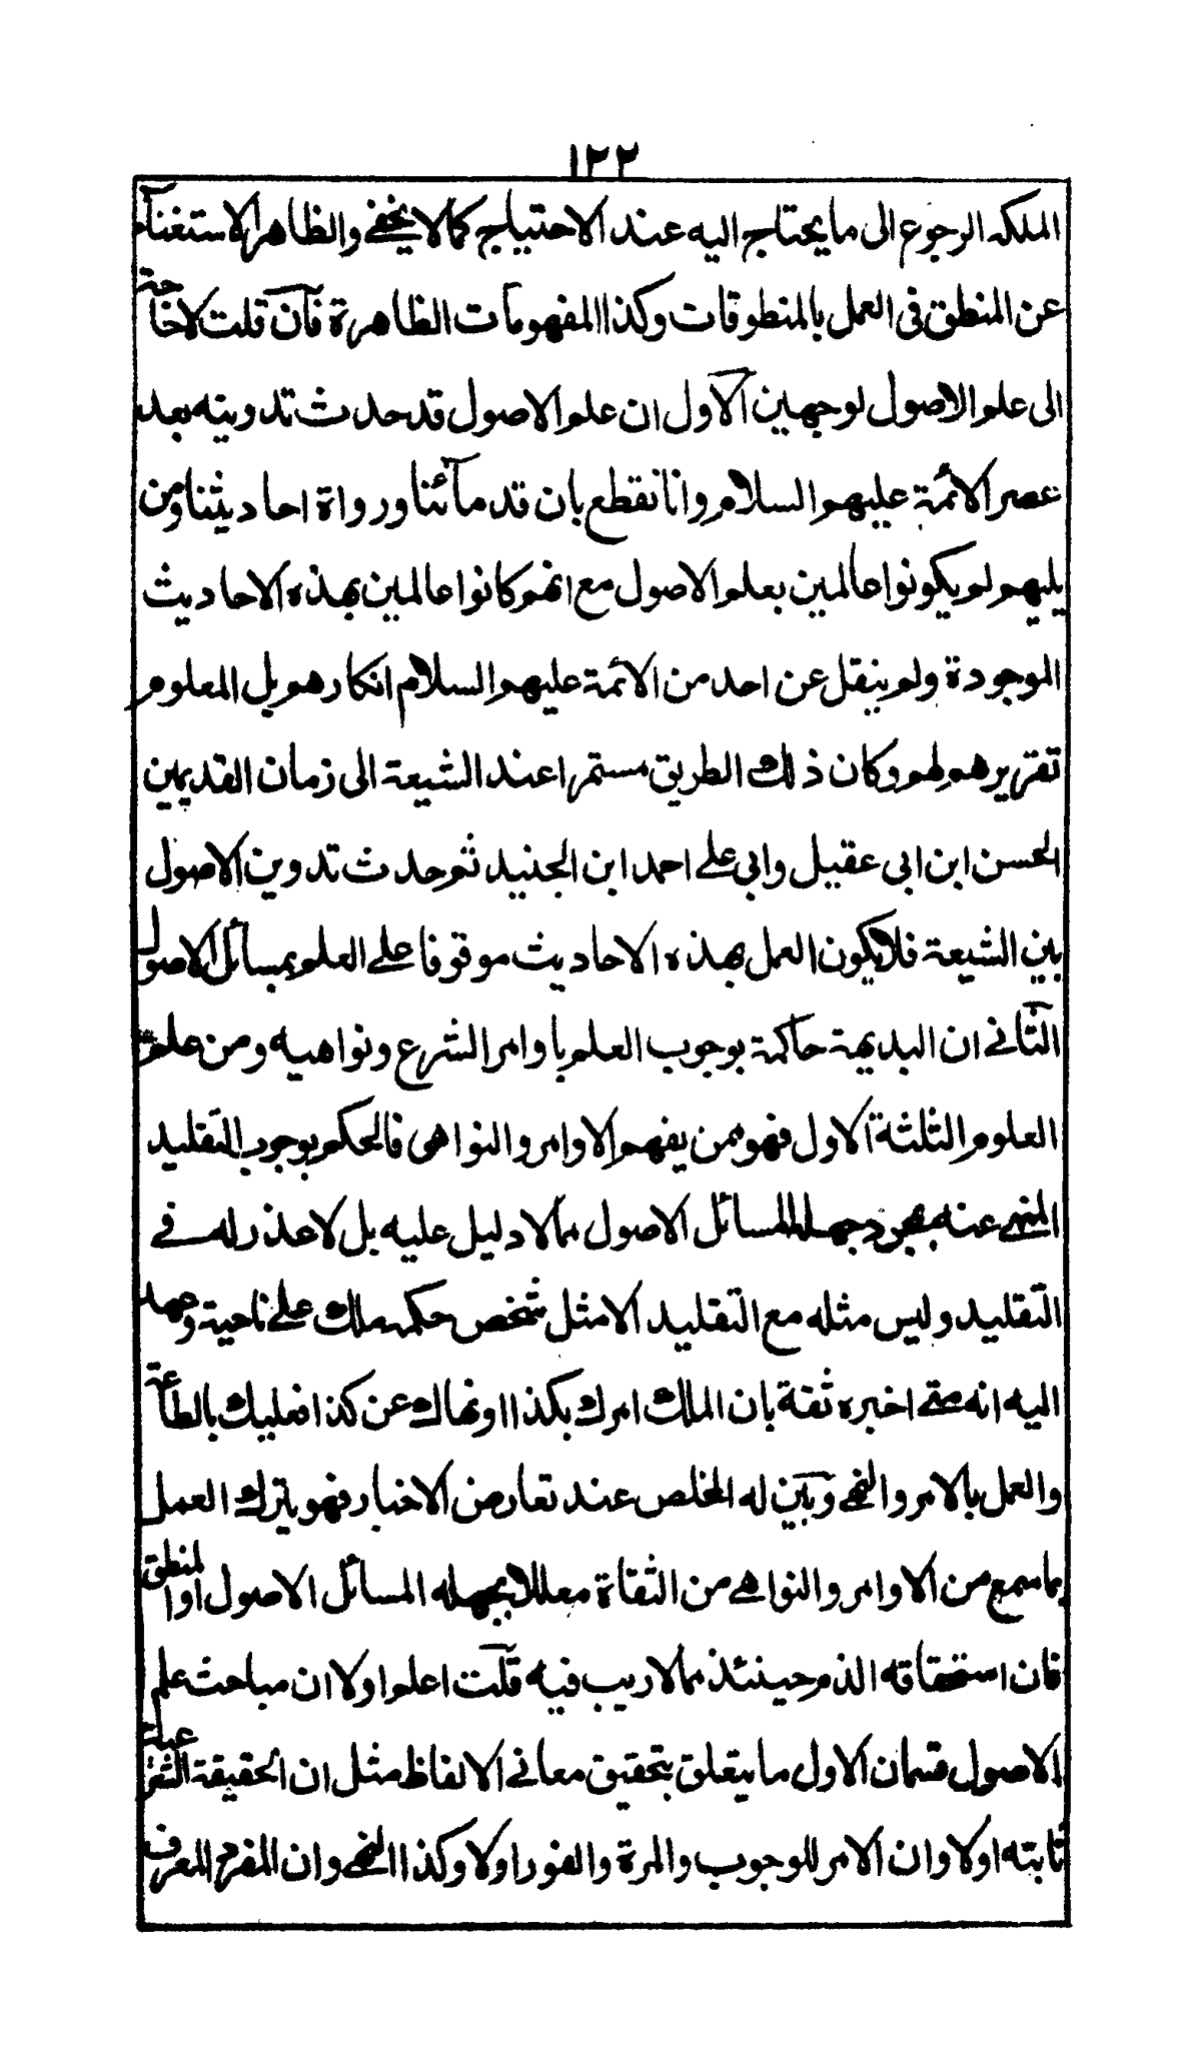 ١٢٢
الملكه الرجوع الى ما يحتاج اليه عند الاحتياج كما لا يخفى والظاهر الاستغناء
عن المنطق فى العمل بالمنطوقات وكذا المفهومات الظاهرة فان قلت لا حاجة
الى علم الاصول لوجهين الاول ان علم الاصول قد حدث تدوينه بعد
عصر الائمة عليهم السلام وانا نقطع بان قدمائنا ورواة احاديثنا ومن
يليهم لم يكونوا عالمين بعلم الاصول مع انهم كانوا عالمين بهذه الاحاديث
الموجودة ولم ينقل عن احد من الائمة عليهم السلام انكارهم بل المعلوم
تقريرهم لهم وكان ذلك الطريق مستمرا عند الشيعة الى زمان القديمين
الحسن ابن ابى عقيل وابى على احمد ابن الجنيد ثم حدث تدوين الاصول
بين الشيعة فلا يكون العمل بهذه الاحاديث موقوفا على العلم بمسائل الاصول
الثانى ان البديهة حاكمة بوجوب العلم باوامر الشرع ونواهيه ومن علم
العلوم الثلثة الاول فهو ممن يفهم الاوامر والنواهى فالحكم بوجوب التقليد
المنهى عنه بمجرد جهله المسائل الاصول مما لا دليل عليه بل لا عذر له فى
التقليد وليس مثله مع التقليد الا مثل شخص حكمه ملك على ناحية وعهد
اليه انه متى اخبره ثقة بان الملك امرك بكذا او نهاك عن كذا فعليك بالطاعة
والعمل بالامر والنهى وبين له المخلص عند تعارض الاخبار فهو يترك العمل
بما سمع من الاوامر والنواهى من الثقاة معللا بجهله المسائل الاصول او المنطق
فان استحقاقه الذم حينئذ مما لا ريب فيه قلت اعلم اولا ان مباحث علم
الاصول قسمان الاول ما يتعلق بتحقيق معانى الالفاظ مثل ان الحقيقة الشرعية
ثابته اولا وان الامر للوجوب والمرة والفور اولا وكذا النهى وان المفرد المعرف